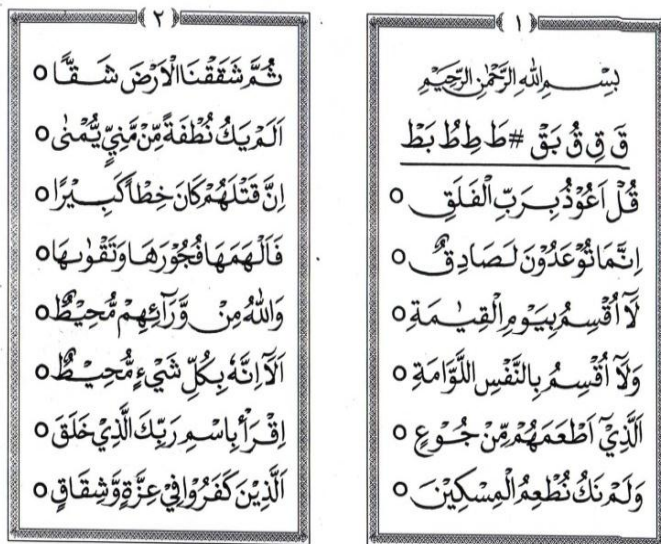 ١
بِسْمِ اللهِ الرَّحْمٰنِ الرَّحِيْمِ
قَ قِ قُ بَقْ # طَ طِ طُ بَطْ
قُلْ اَعُوْذُ بِرَبِّ الْفَلَقِ ○
اِنَّمَا تُوْعَدُوْنَ لَصَادِقٌ ○
لَآ اُقْسِمُ بِيَوْمِ الْقِيٰمَةِ ○
وَلَآ اُقْسِمُ بِالنَّفْسِ اللَّوَّامَةِ ○
اَلَّذِيْٓ اَطْعَمَهُمْ مِّنْ جُوْعٍ ○
وَلَمْ نَكُ نُطْعِمُ الْمِسْكِيْنَ ○
٢
ثُمَّ شَقَقْنَا الْاَرْضَ شَقًّا ○
اَلَمْ يَكُ نُطْفَةً مِّنْ مَّنِيٍّ يُّمْنٰى ○
اِنَّ قَتْلَهُمْ كَانَ خِطْاً كَبِيْرًا ○
فَاَلْهَمَهَا فُجُوْرَهَا وَتَقْوٰىهَا ○
وَاللهُ مِنْ وَّرَآئِهِمْ مُّحِيْطٌ ○
اَلَآ اِنَّهٗ بِكُلِّ شَيْءٍ مُّحِيْطٌ ○
اِقْرَأْ بِاسْمِ رَبِّكَ الَّذِيْ خَلَقَ ○
اَلَّذِيْنَ كَفَرُوْا فِيْ عِزَّةٍ وَّشِقَاقٍ ○